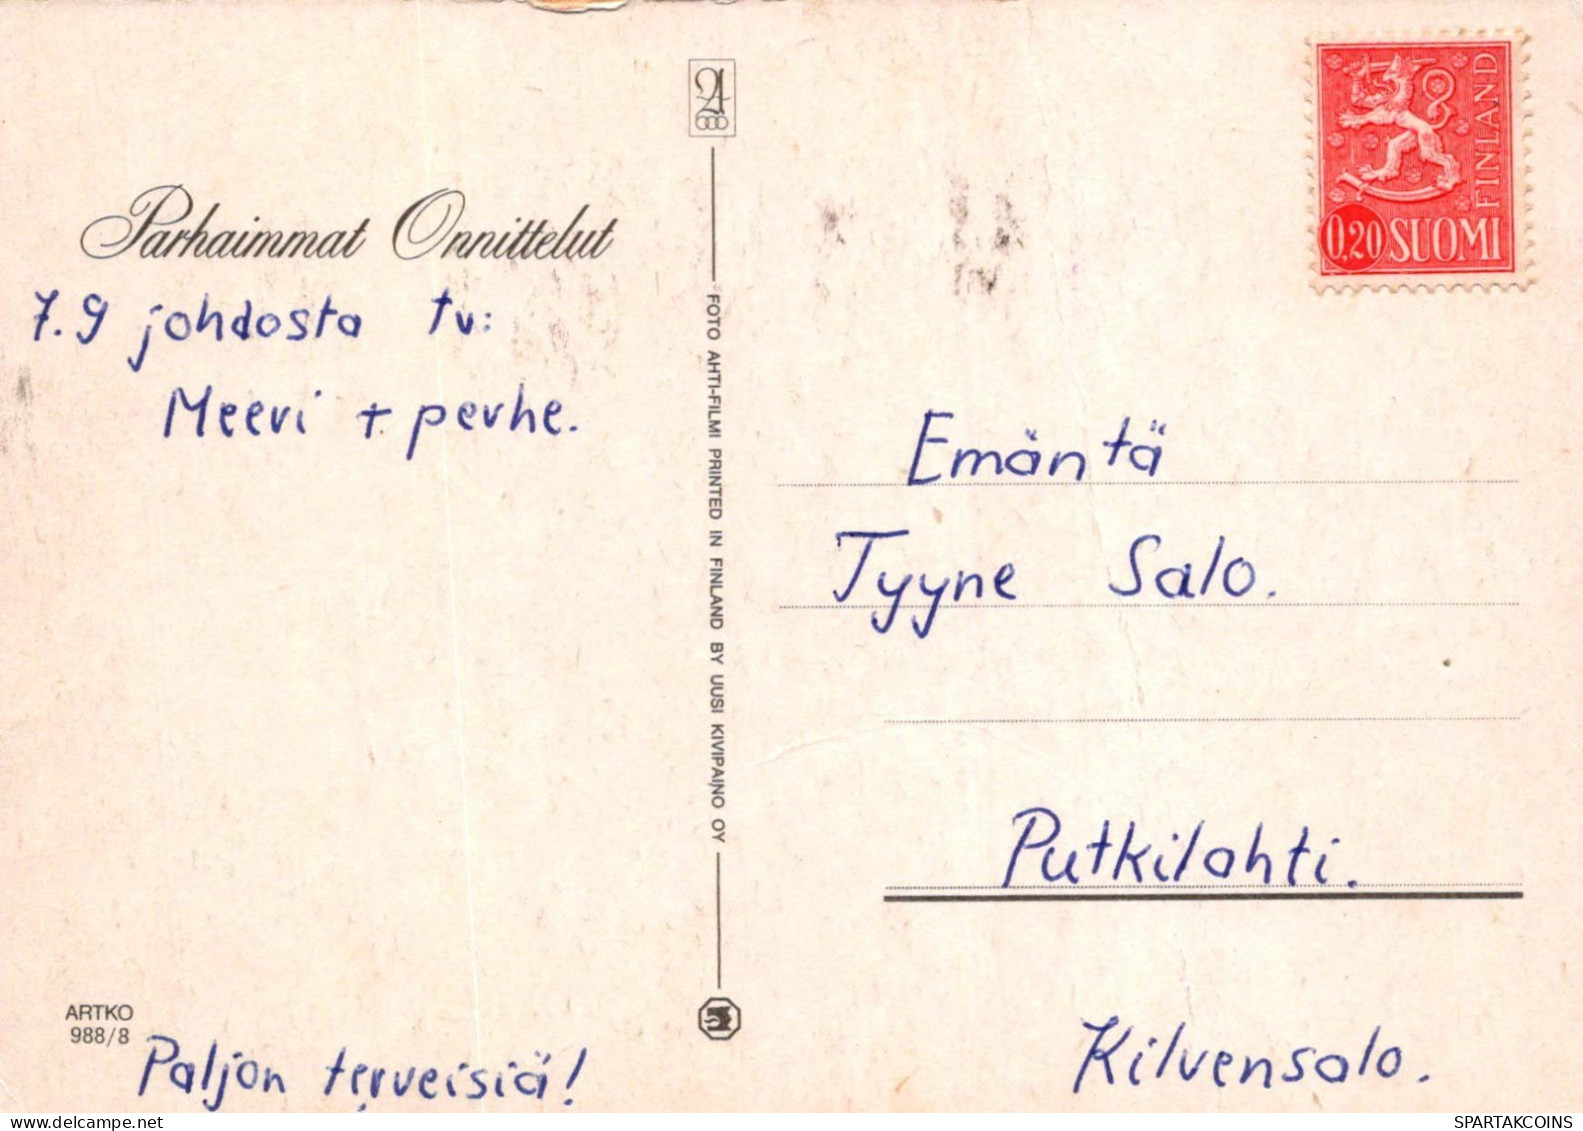 Parhaimmat Onnittelut
7.9 johdosta tv:
Meevi + perhe.
ARTKO
988/8
Paljon terveisiä!
FOTO AHTI-FILMI PRINTED IN FINLAND BY UUSI KIVIPAINO OY
FINLAND
0,20 SUOMI
Emäntä
Tyyne Salo.
Putkilahti.
Kilvensalo.
SPARTAKCOINS